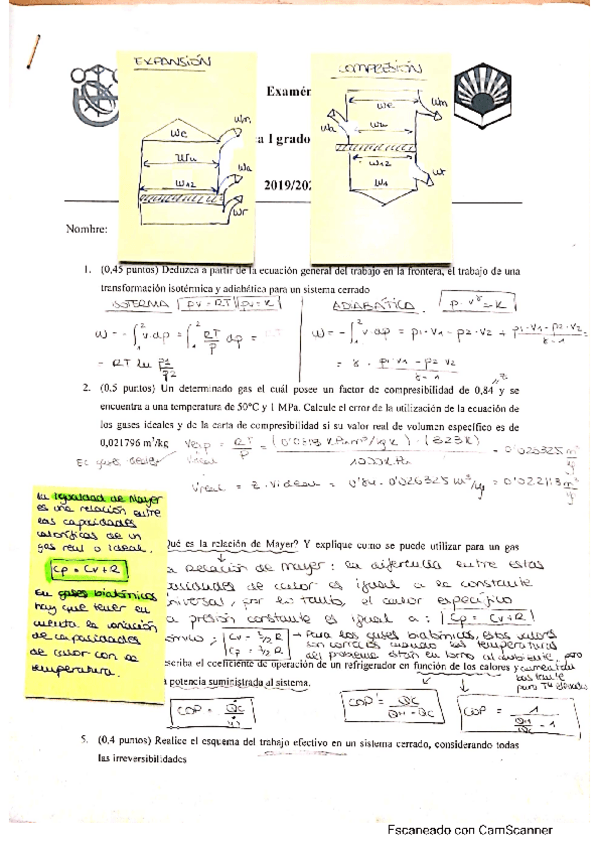 EXPANSIÓN
We
Wu
W12
Wm
Wa
Wr
COMPRESIÓN
We
Wu
W12
W1
Wm
Wr
Exámen
a I grado
2019/202
Nombre:
1. (0,45 puntos) Deduzca a partir de la ecuación general del trabajo en la frontera, el trabajo de una
transformación isotérmica y adiabática para un sistema cerrado
ISOTERMA pv = RT pv = K
ADIABÁTICA p·v^γ = K
W = -∫₁² v·dp = ∫₁² RT/P dp =
- RT ln p1/p2
W = -∫₁² v·dp = p1·v1 - p2·v2 + p1·v1 - p2·v2 / γ-1 =
= γ · p1·v1 - p2·v2 / γ-1
2. (0,5 puntos) Un determinado gas el cuál posee un factor de compresibilidad de 0,84 y se
encuentra a una temperatura de 50°C y 1 MPa. Calcule el error de la utilización de la ecuación de
los gases ideales y de la carta de compresibilidad si su valor real de volumen específico es de
0,021796 m³/kg
= RT/P = (323K) / 1000 kPa = 0'026325 m³/kg
Videal
Ec gases ideales
Vreal = z·Videal = 0'84·0'026325 m³/kg = 0'022113 m³/kg
La Igualdad de Mayer
es una relación entre
las capacidades
caloríficas de un
gas real o ideal.
Cp = Cv + R
En gases biatómicos
hay que tener en
cuenta la variación
de capacidades
de calor con la
temperatura.
Qué es la relación de Mayer? Y explique como se puede utilizar para un gas
a relación de Mayer: la diferencia entre estas
cidades de calor es igual a la constante
niversal, por lo tanto, el calor específico
a presión constante es igual a: Cp = Cv + R
Cv = 5/2 R
Cp = 7/2 R
→ Para los gases biatómicos, estos valores
son cuando las temperaturas
del están en torno al ambiente, pero
para Tª elevadas
scriba el coeficiente de operación de un refrigerador en función de los calores y
a potencia suministrada al sistema.
COP = Q̇c / Ẇ
COP = Qc / QH - Qc
COP = 1 / QH/Qc - 1
5. (0,4 puntos) Realice el esquema del trabajo efectivo en un sistema cerrado, considerando todas
las irreversibilidades
Escaneado con CamScanner